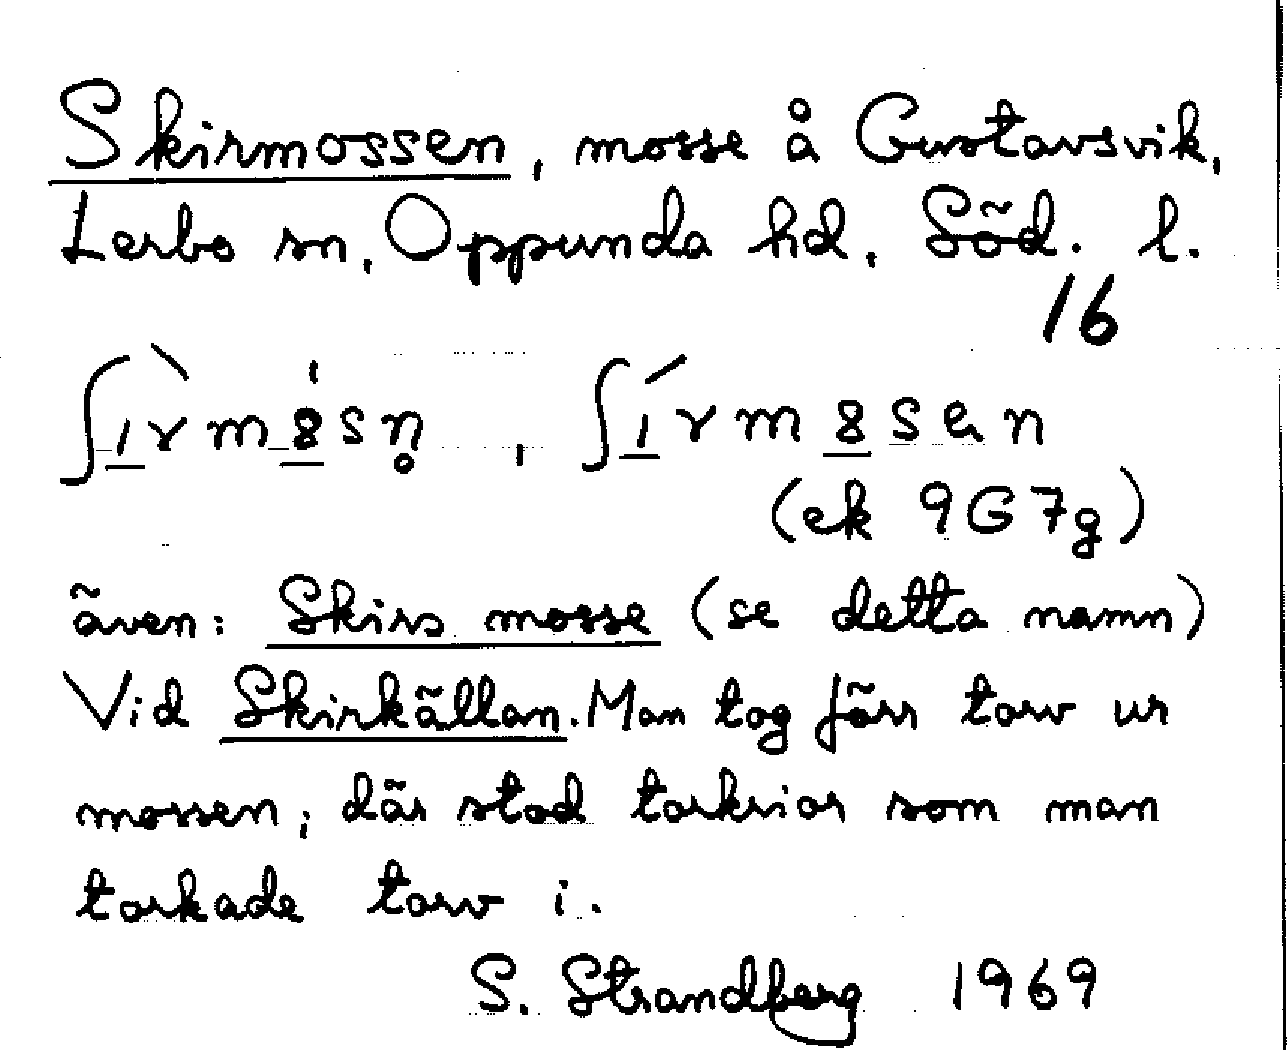 Skirmossen, mosse å Gustavsvik,
Lerbo sn, Oppunda hd, Söd. l.
16
ʃìrm8̍sn̥, ʃírm8sen
(ek 9G7g)
även: Skirs mosse (se detta namn)
Vid Skirkällan. Man tog förr torv ur
mossen; där stod torkrior som man
torkade torv i.
S. Strandberg 1969